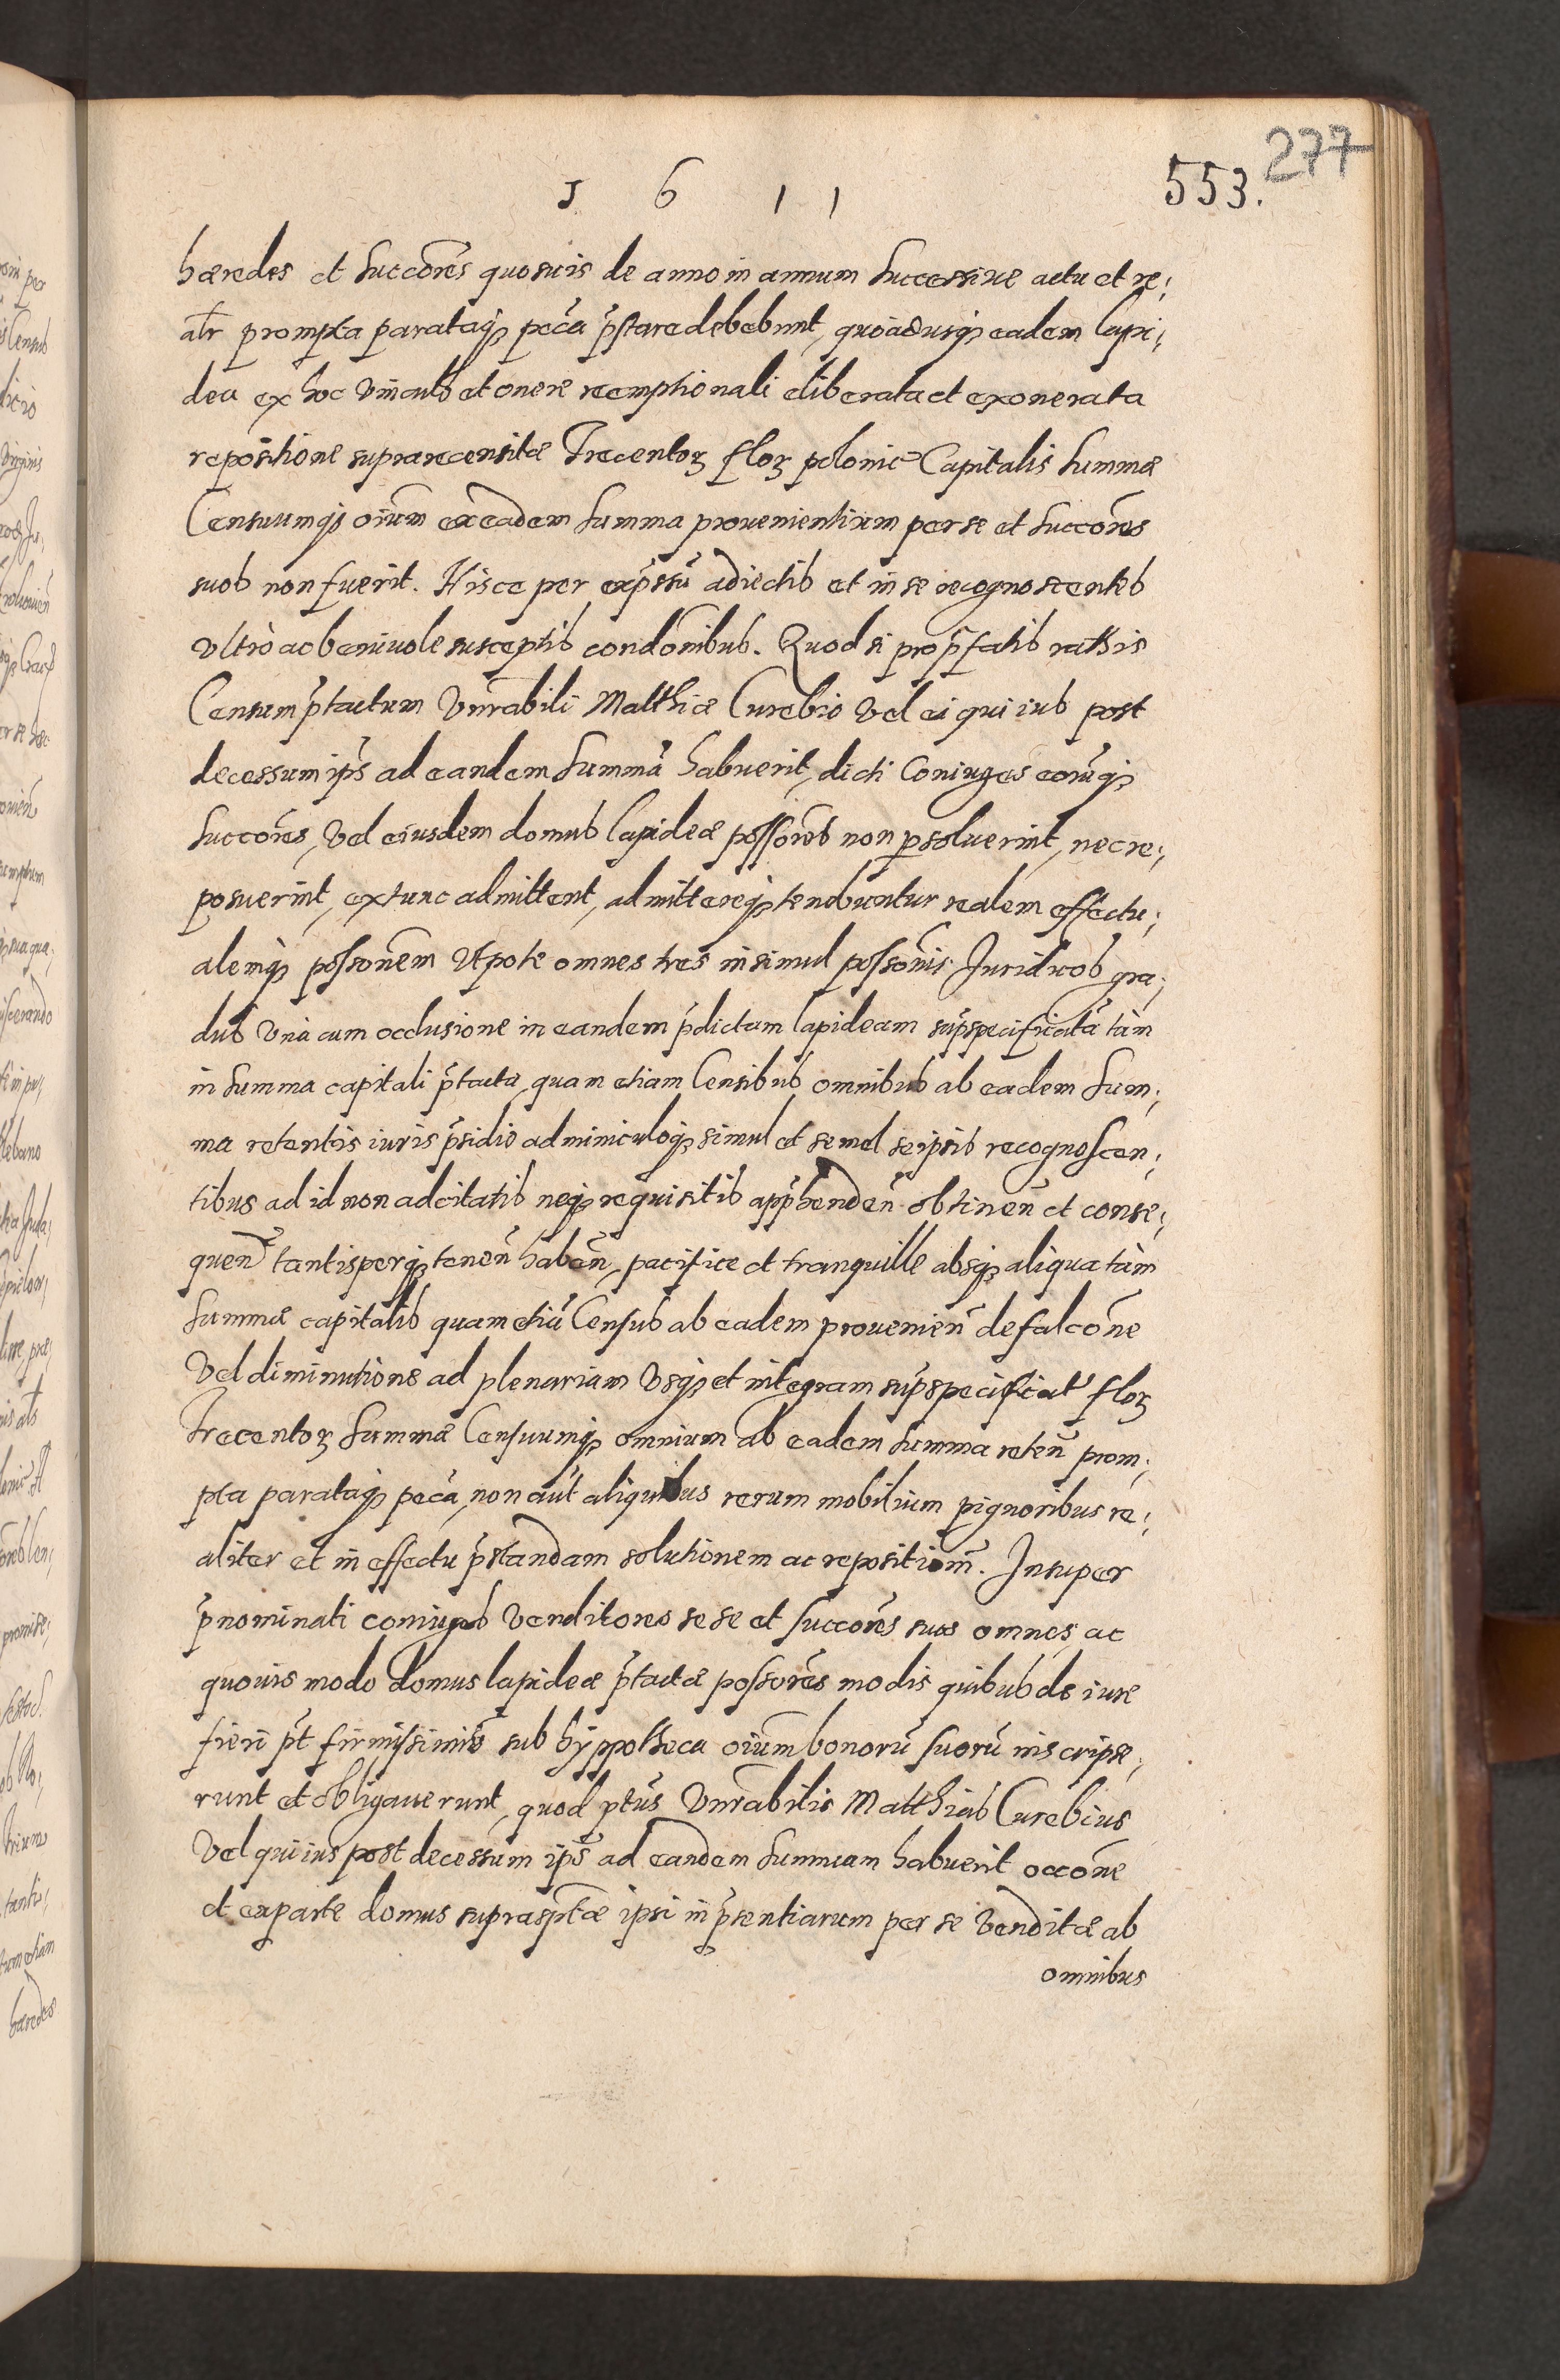 1 6 1 1
553. 277
hæredes et succōres quosuis de anno in annum successiue actu et re¡
alr̄ prompta parataq₃ pec̄ā p̄stare debebunt, quoádusq₃ eadem lapi¡
dea ex hoc vinculo et onere reemptionali eliberata et exonerata
repositione suprarecensitæ Trecentoꝝ floꝝ polonic Capitalis summæ
Censuumq₃ oīum ex eadem summa prouenientium per se et succōres
suos non fuerit. Hisce per exp̄ssū adiectis et in se recognoscentes
vltrò ac beniuole susceptis condōnibus. Quod si pro p̄fatis rathis
Censum p̄tactum Vnr̄abili Matthiæ Curebio vel ei qui ius post
decessum ip̄s ad eandem summā habuerit, dicti Coniuges eorūq₃
succōres, vel eiusdem domus lapideæ possōres non psoluerint, nec re¡
posuerint, extunc admittent, admittereq₃ tenebuntur realem effectu¡
alemq₃ possōnem vtpote omnes tres insimul possōnis Juridicos gra¡
dus vnà cum occlusione in eandem p̄dictam lapideam sup̄specificatā tàm
in summa capitali p̄tacta, quam etiam Censibus omnibus ab eadem sum¡
ma retentis iuris p̄sidio adminiculoq₃ simul et semel seipsis recognoscen¡
tibus ad id non adcitatis neq₃ requisitis app̄hendeñ obtineñ et conse¡
queñ tantisperq₃ teneñ habeñ, pacifice et tranquille absq₃ aliqua tàm
summæ capitalis quam etiā Census ab eadem prouenieñ defalcōne
vel diminutione ad plenariam vsq₃ et integram sup̄specificat floꝝ
Trecentoꝝ summæ Censuumq₃ omnium ab eadem summa reteñ prom¡
pta parataq₃ pec̄ā, non aūt aliquibus rerum mobilium pignoribus re¡
aliter et in effectu p̄standam solutionem ac repositiōm. Insuper
p̄nominati coniuges venditores sese et succōres suos omnes ac
quouis modo domus lapideæ p̄tactæ possōres modis quibus de iure
fieri pt̄ firmissimis sub hyppotheca oīum bonorū suorū inscripse¡
runt et obligauerunt, quod pt̄us Vnr̄abilis Matthias Curebius
Vel qui ius post decessum ip̄s ad eandem summam habuerit occōne
et ex parte domus suprasp̄tæ ipsi in p̄sentiarum per se venditæ ab
omnibus